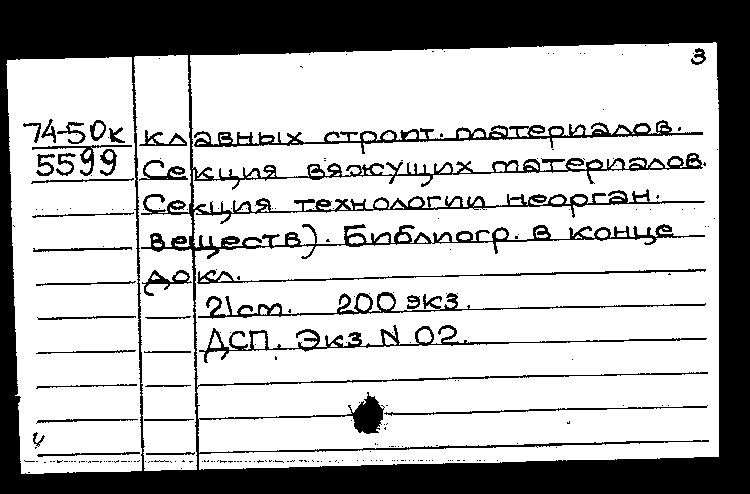 3
74-50к клавных строит. материалов.
5599 Секция вяжущих материалов.
Секция технологии неорган.
веществ). Библиогр. в конце
докл.
21 ст. 200 экз.
ДСП. Экз. N 02.